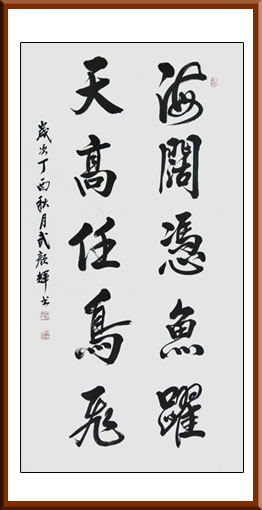 海闊憑魚躍
天高任鳥飛
歲次丁酉秋月武毅輝书